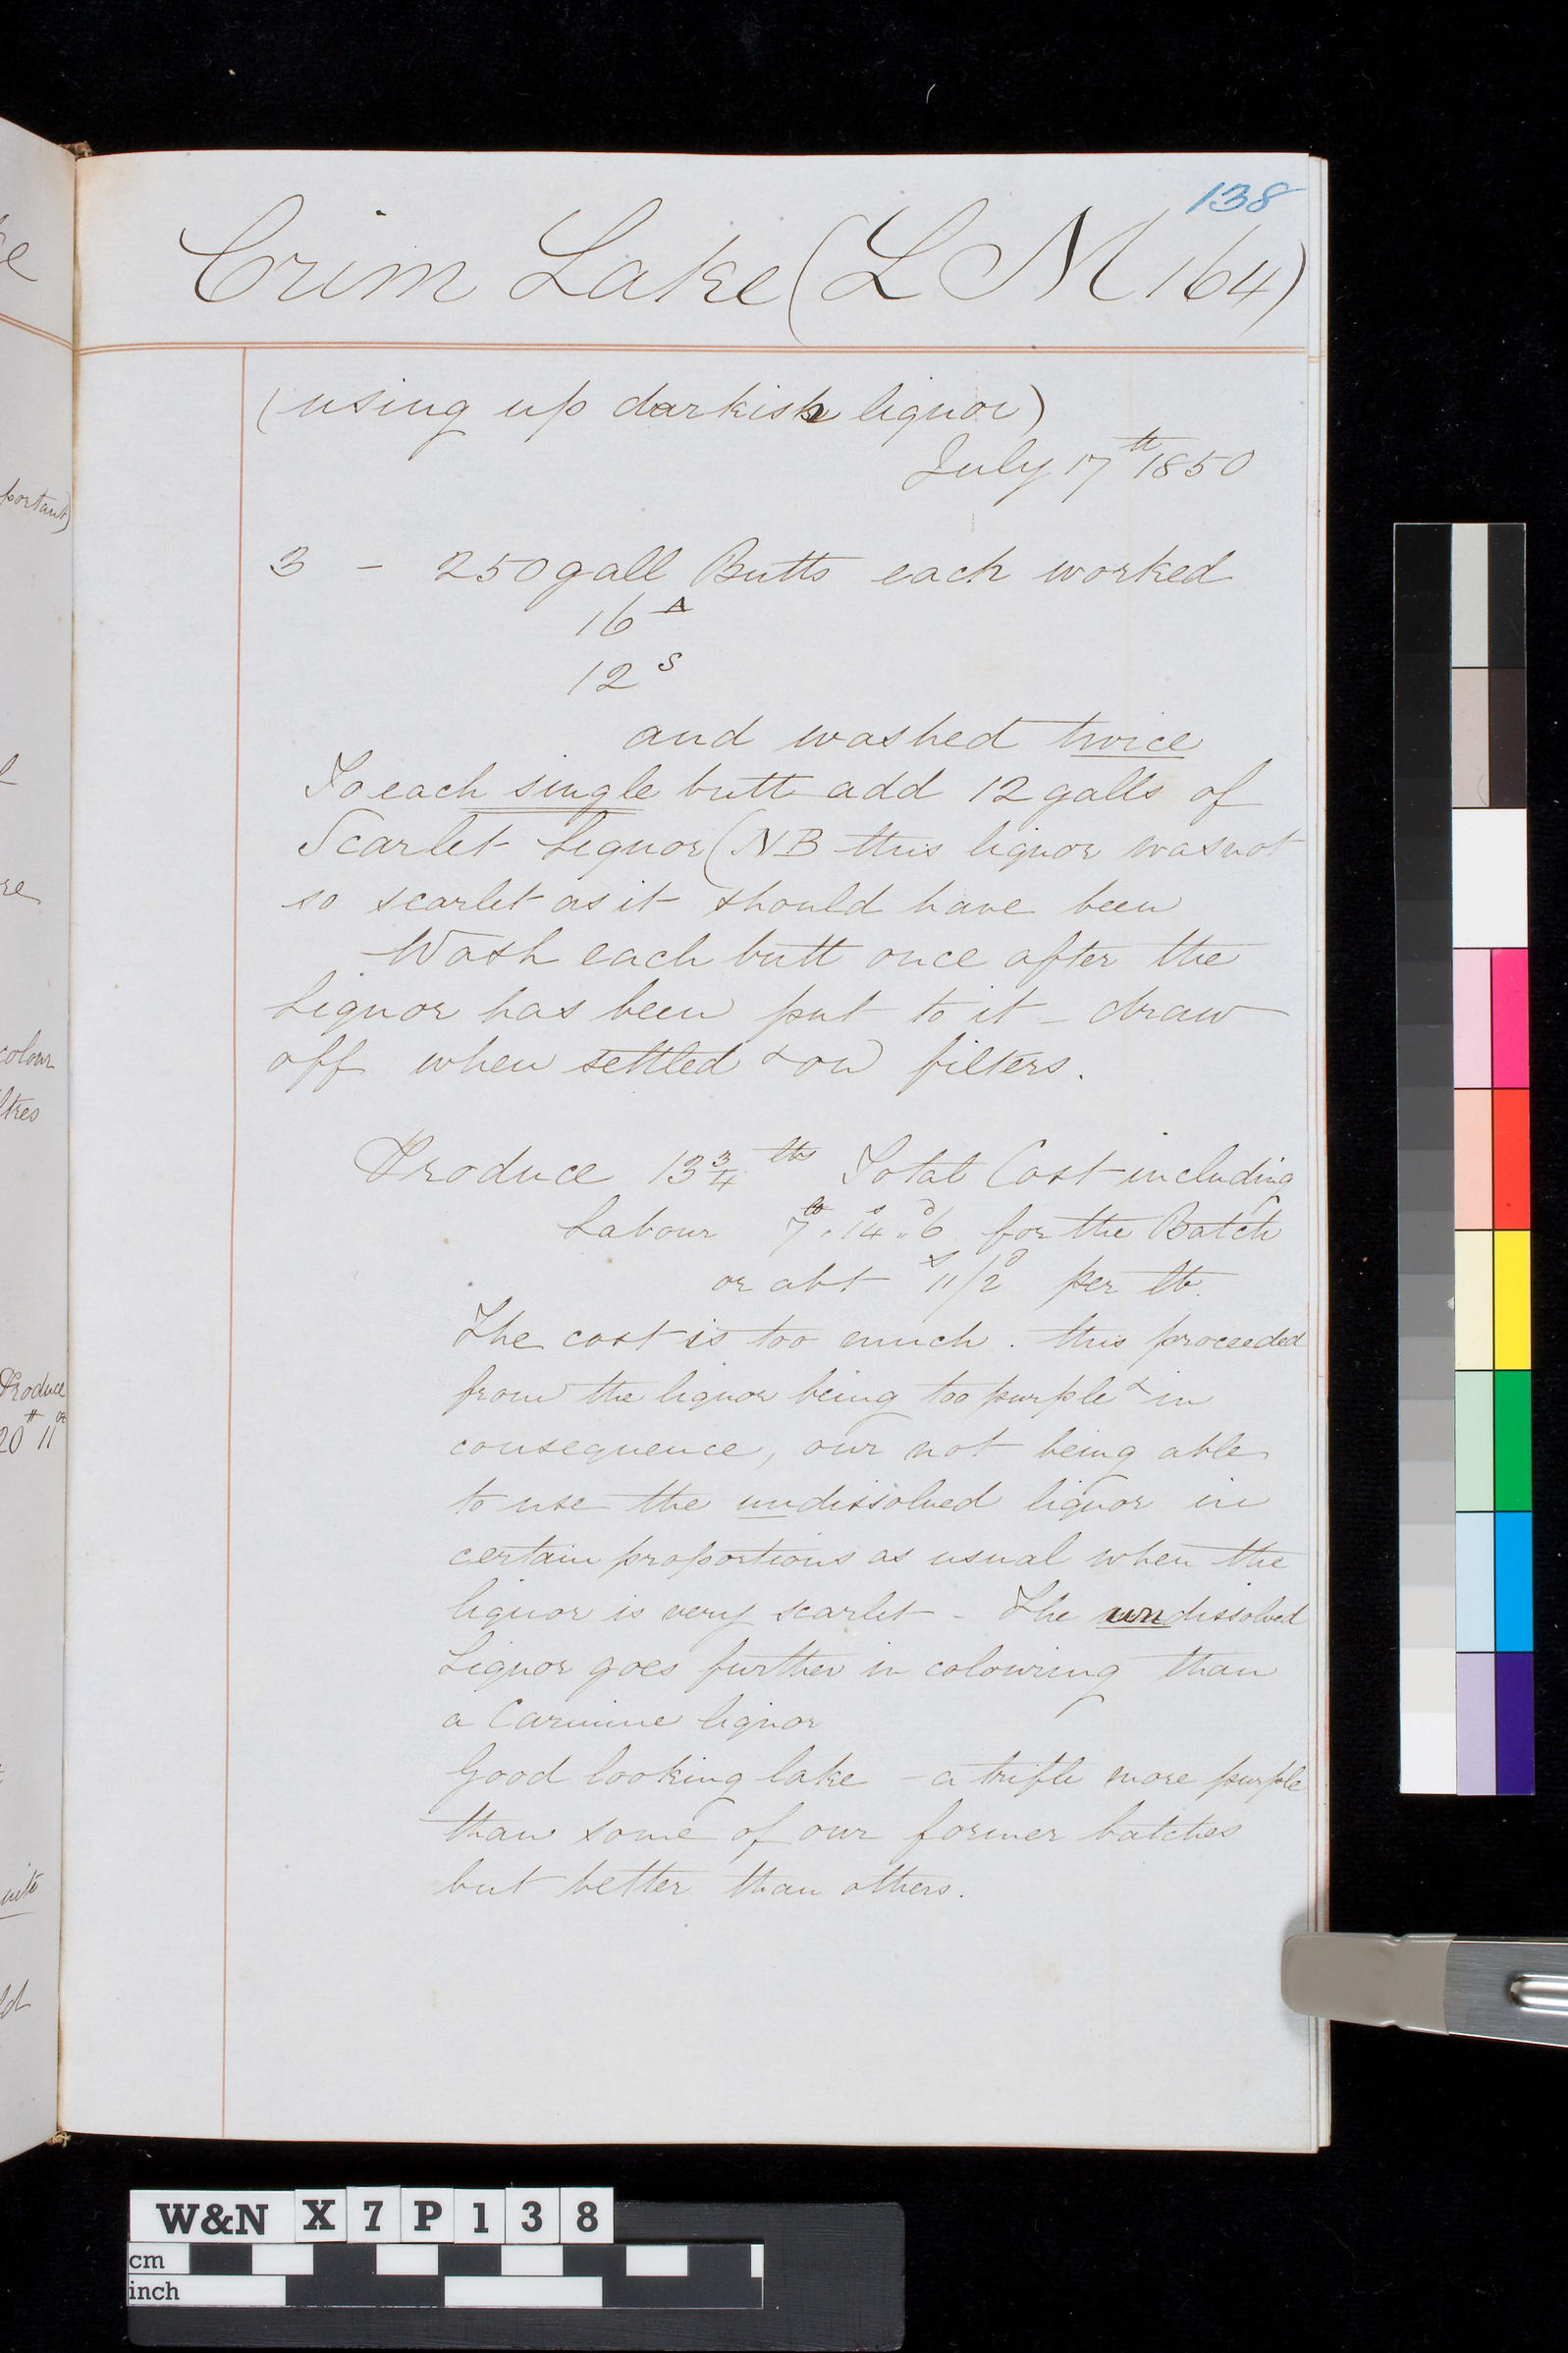 138
Crim Lake (LM 164)
(using up darkish liquor)
July 17th 1850
3 – 250 gall Butts each worked
16 A
12 S
and washed twice
To each single butt add 12 galls of
Scarlet Liquor (NB this liquor was not
so scarlet as it should have been
Wash each butt once after the
Liquor has been put to it – draw
off when settled & on filters.
Produce 13 3/4 lbs Total Cost including
Labour 7£. 14s. 6d for the Batch
or abt s11/2d per lb.
The cost is too much. this proceeded
from the liquor being too purple & in
consequence, our not being able
to use the undissolved liquor in
certain proportions as usual when the
liquor is very scarlet – The undissolved
Liquor goes further in colouring than
a Carmine liquor
Good looking lake – a trifle more purple
than some of our former batches
but better than others.
portant)
colour
ltres
Produce
20 # 11 oz
W&N X 7 P 1 3 8
cm
inch